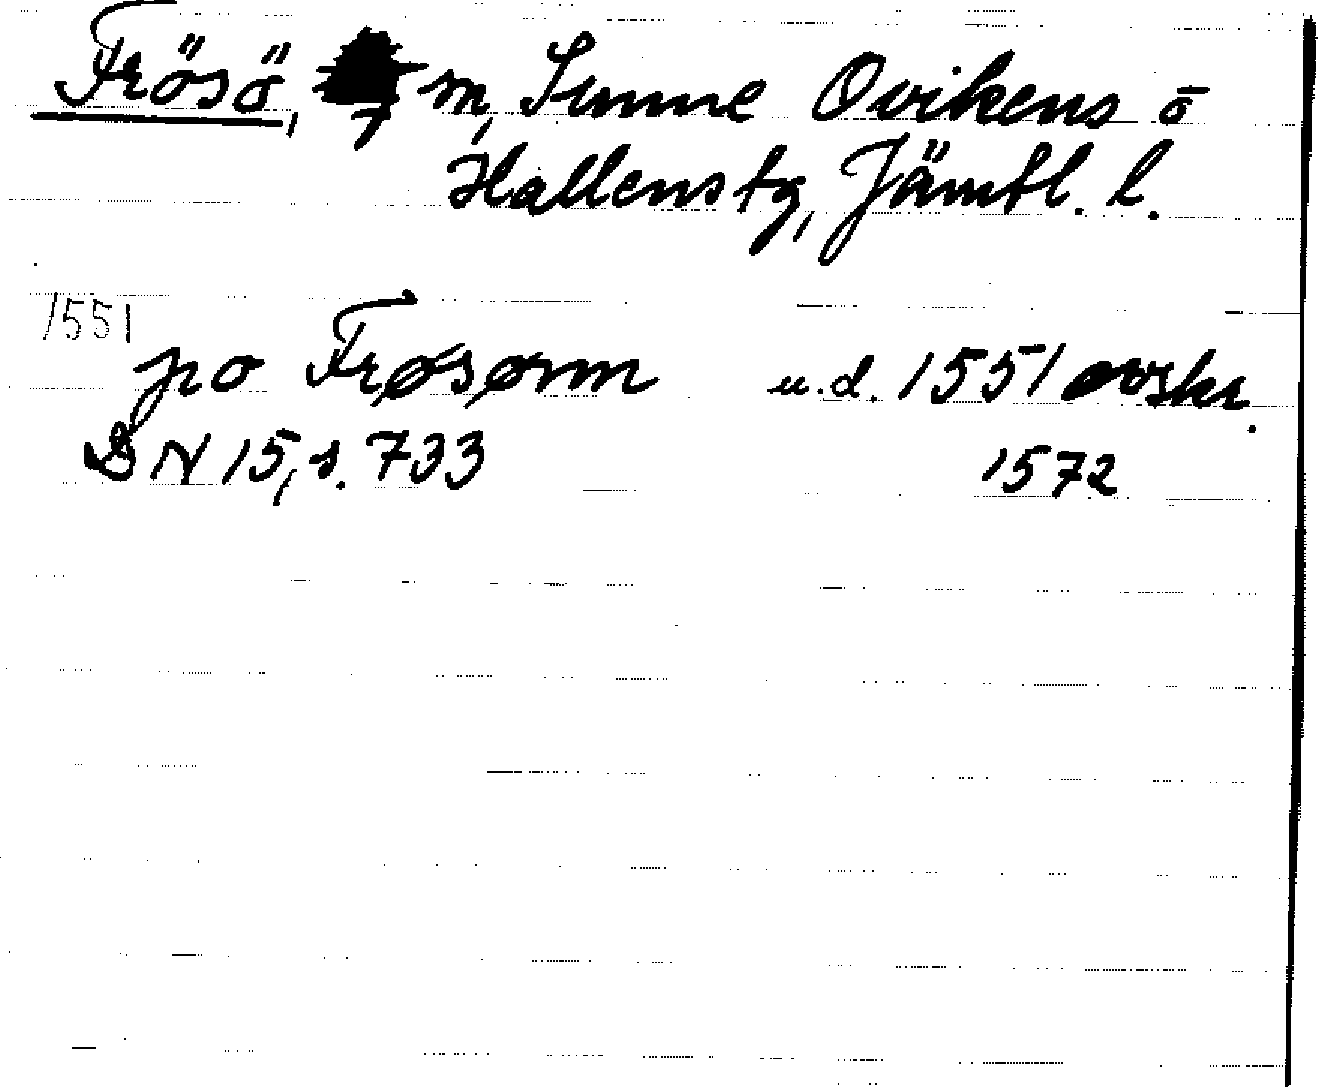 Frösö, m, Sunne Ovikens o
Hallens tg, Jämtl. l.
1551
po Frøsønn u.d. 1551 avskr.
DN 15, s. 733 1572